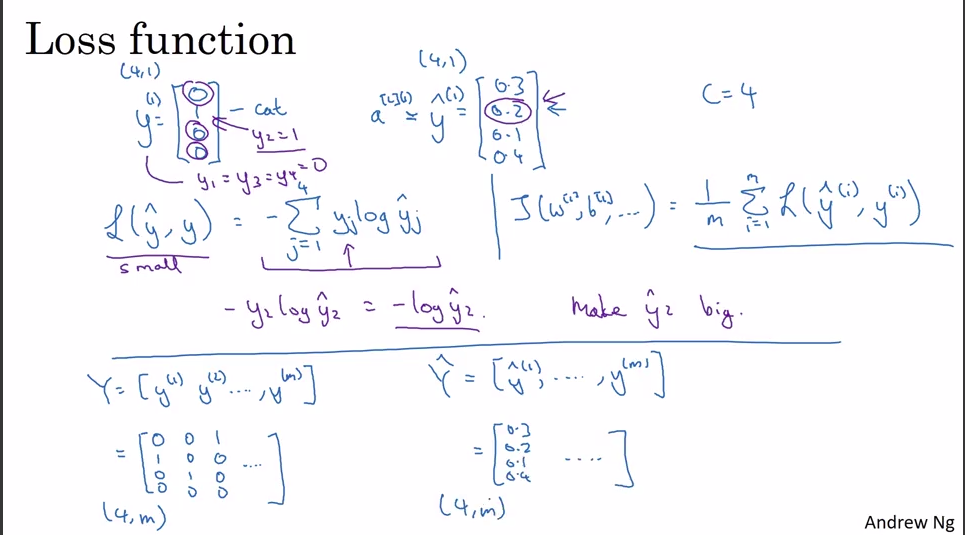 Loss function
(4,1)
y^(1) = [0 1 0 0] - cat
y₂ = 1
y₁ = y₃ = y₄ = 0
(4,1)
a^[L](1) ≈ ŷ^(1) = [0.3 0.2 0.1 0.4]
C = 4
L(ŷ, y) = - Σ_{j=1}^{4} y_j log ŷ_j
small
J(w^[1], b^[1], ...) = 1/m Σ_{i=1}^{m} L(ŷ^(i), y^(i))
- y₂ log ŷ₂ = - log ŷ₂. Make ŷ₂ big.
Y = [y^(1) y^(2) ...., y^(m)]
= [0 0 1
1 0 0 ....
0 1 0
0 0 0]
(4,m)
Ŷ = [ŷ^(1), ...., y^(m)]
= [0.3
0.2
0.1 ....
0.4]
(4,m)
Andrew Ng